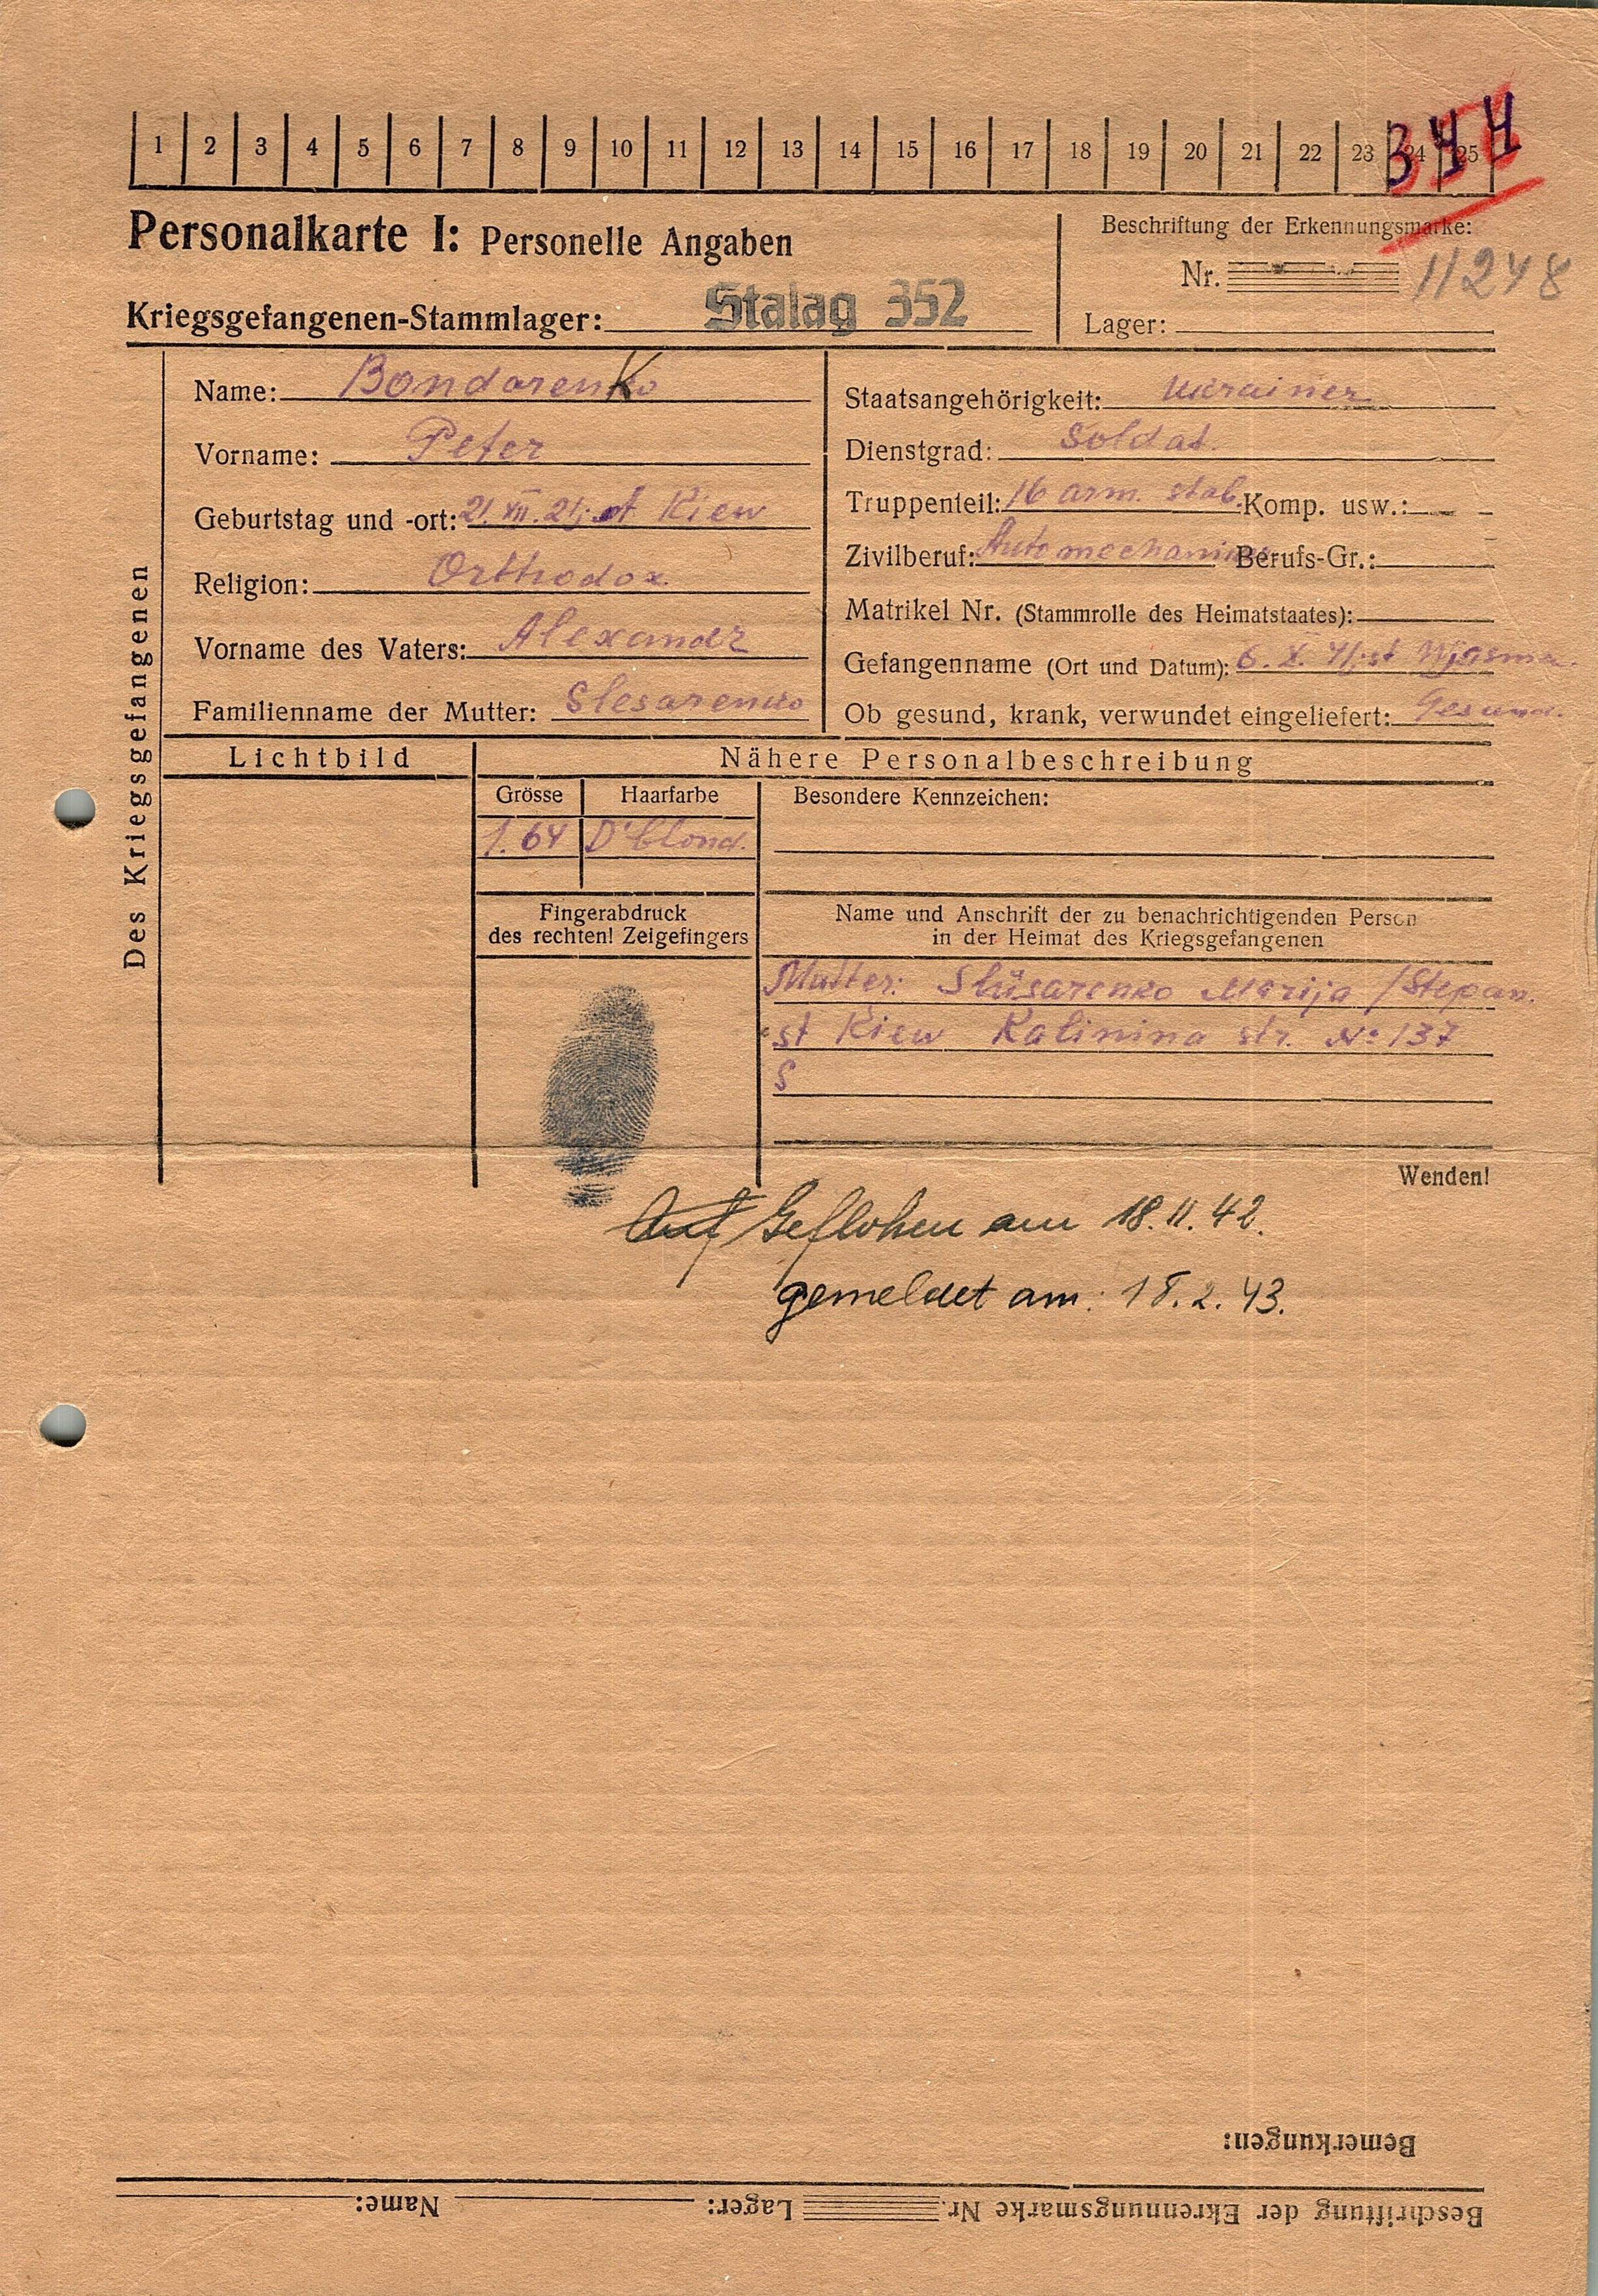 1 2 3 4 5 6 7 8 9 10 11 12 13 14 15 16 17 18 19 20 21 22 23 24 25
344
Personalkarte I: Personelle Angaben
Beschriftung der Erkennungsmarke:
Nr. 11248
Kriegsgefangenen-Stammlager: Stalag 352
Lager:
Des Kriegsgefangenen
Name: Bondarenko
Vorname: Peter
Geburtstag und -ort: 21.XII.21; st Kiew
Religion: Orthodox
Vorname des Vaters: Alexandr
Familienname der Mutter: Slesarenko
Staatsangehörigkeit: Ukrainer
Dienstgrad: Soldat.
Truppenteil: 16 arm. stab. Komp. usw.: —
Zivilberuf: Automechaniker Berufs-Gr.:
Matrikel Nr. (Stammrolle des Heimatstaates):
Gefangenname (Ort und Datum): 6. X. 41. st Wjasma.
Ob gesund, krank, verwundet eingeliefert: Gesund.
Lichtbild
Nähere Personalbeschreibung
Grösse Haarfarbe Besondere Kennzeichen:
1.64 D'blond.
Fingerabdruck
des rechten! Zeigefingers
Name und Anschrift der zu benachrichtigenden Person
in der Heimat des Kriegsgefangenen
Mutter: Slüsarenko Marija /Stepan.
st Kiew Kalinina str. № 137
S
Wenden!
Auf Geflohen am 18.11.42.
gemeldet am: 18.2.43.
Bemerkungen:
Beschriftung der Ekrennungsmarke Nr. Lager: Name: